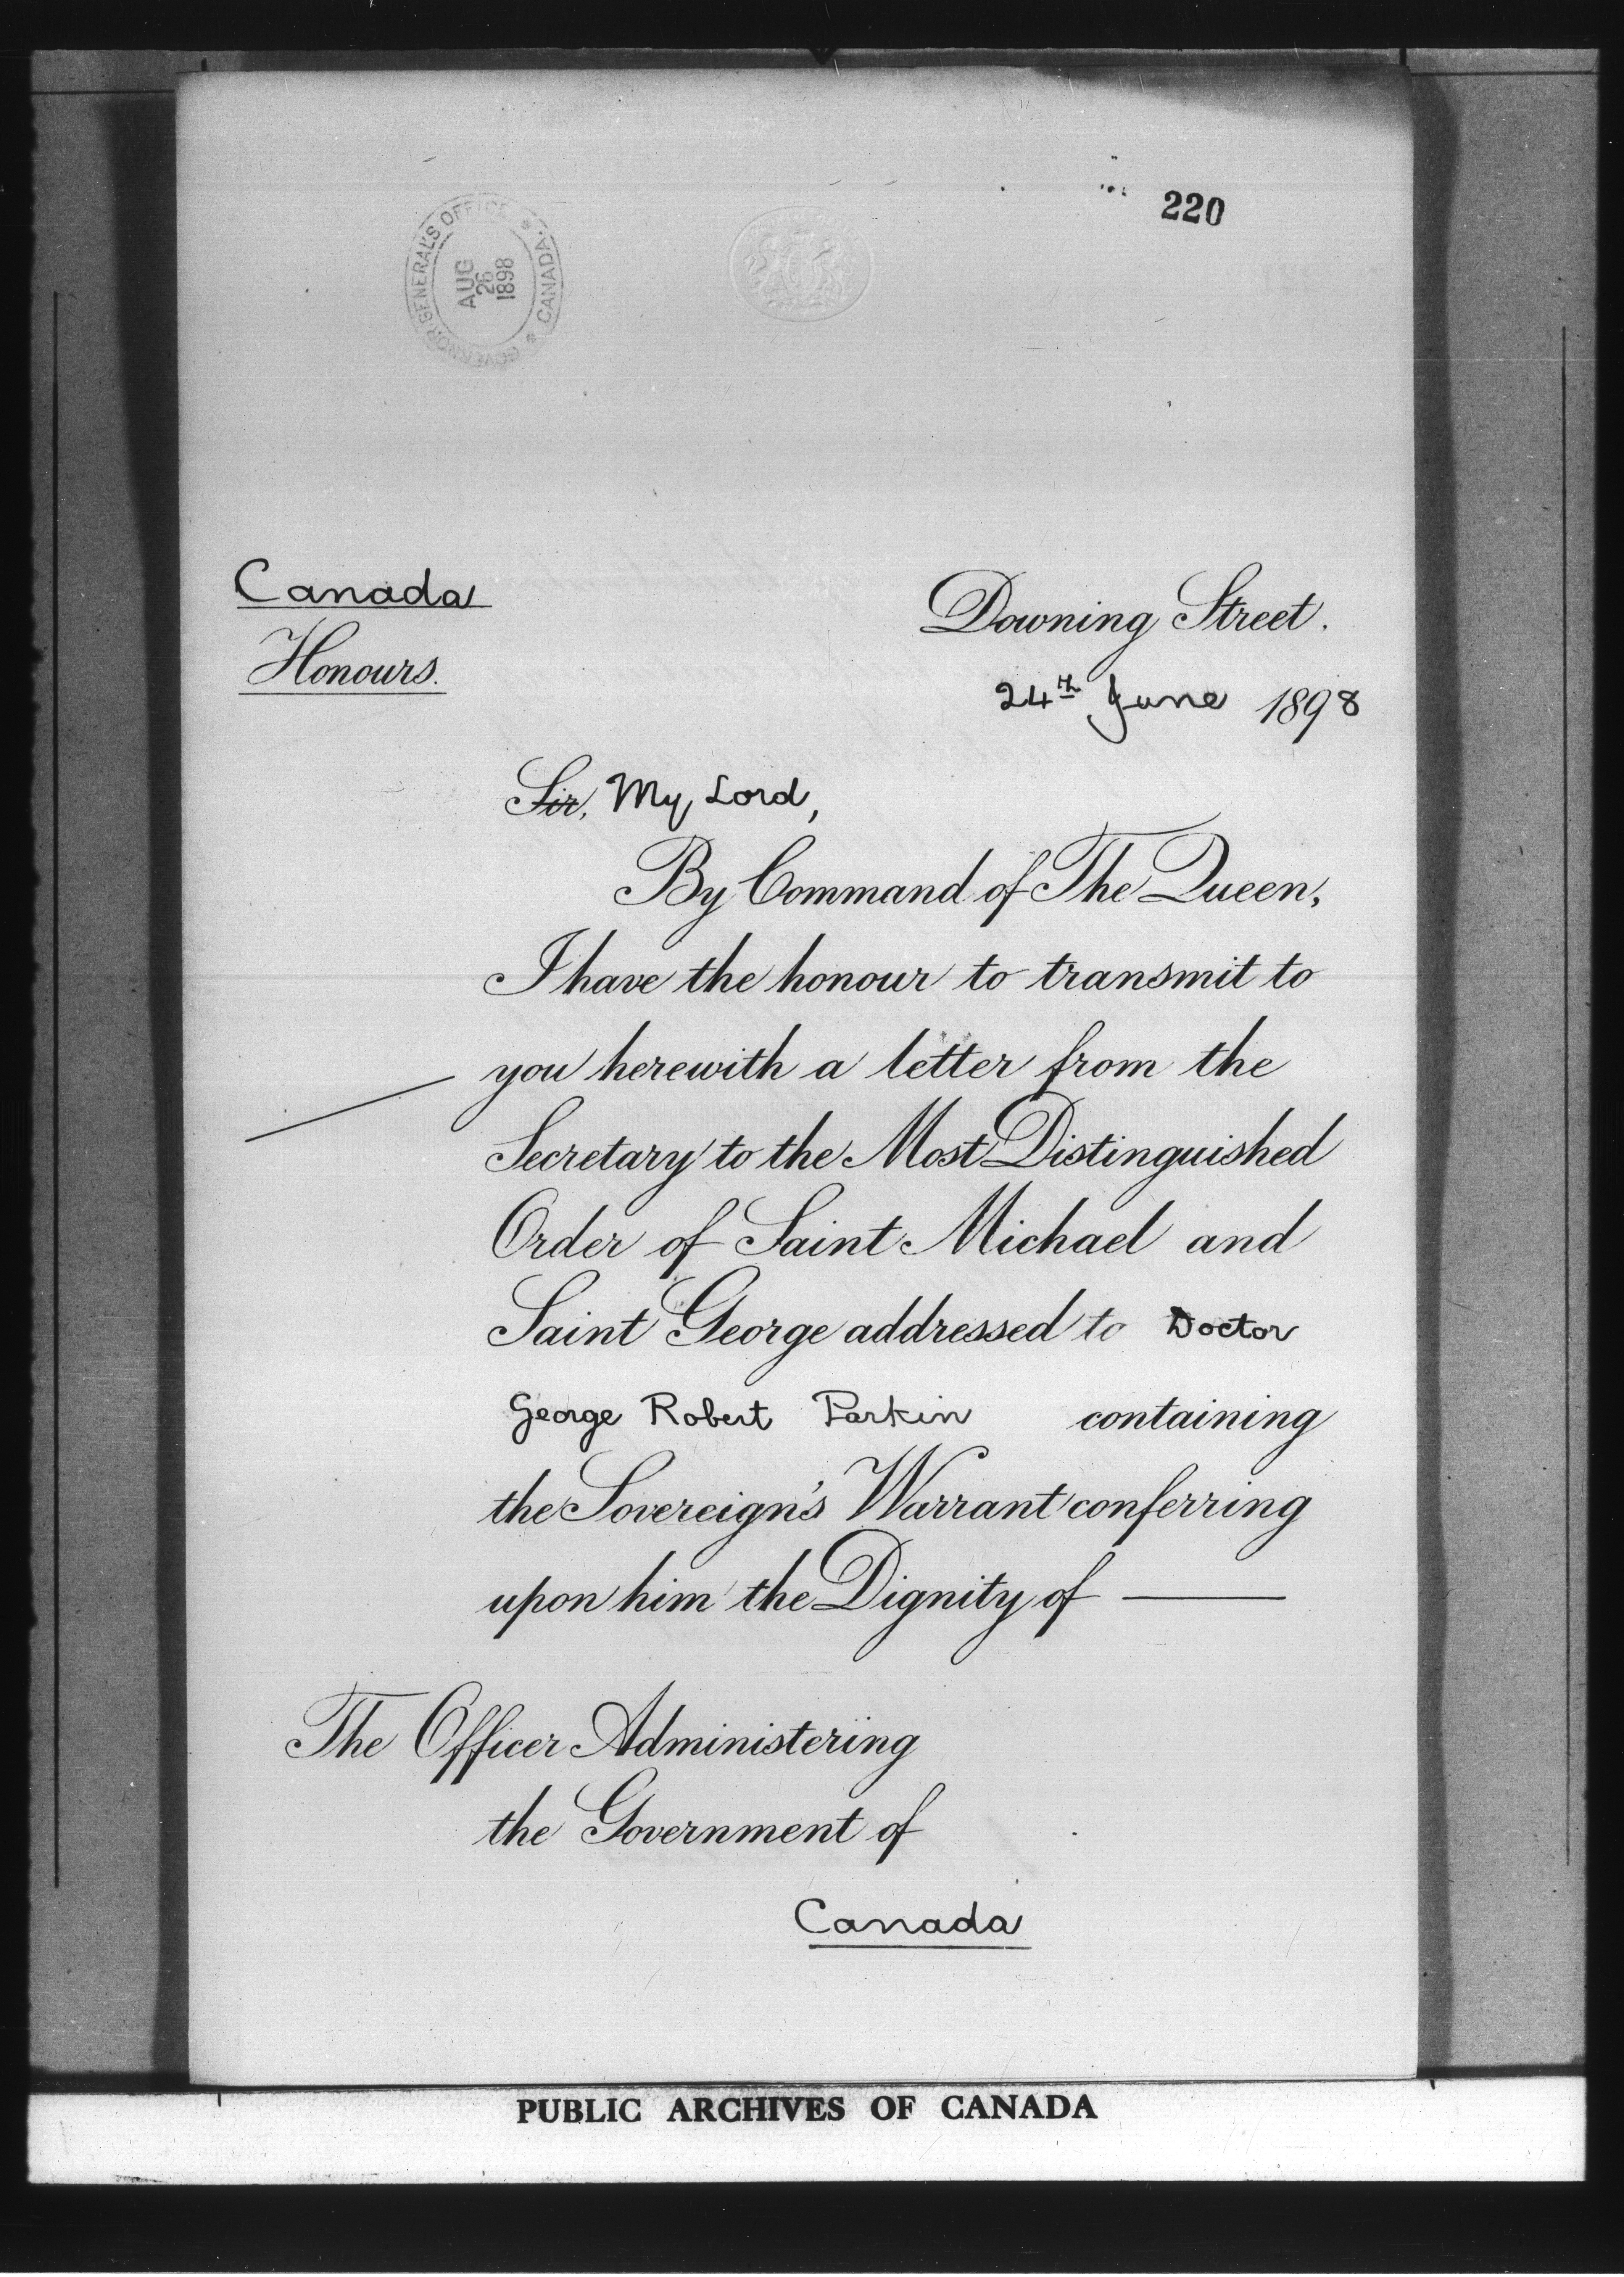 220
GOVERNOR GENERAL'S OFFICE * CANADA. *
AUG
26
1898
Canada
Honours.
Downing Street.
24th June 1898
Sir, My Lord,
By Command of The Queen,
I have the honour to transmit to
you herewith a letter from the
Secretary to the Most Distinguished
Order of Saint Michael and
Saint George addressed to Doctor
George Robert Parkin containing
the Sovereign's Warrant conferring
upon him the Dignity of —
The Officer Administering
the Government of
Canada
PUBLIC ARCHIVES OF CANADA